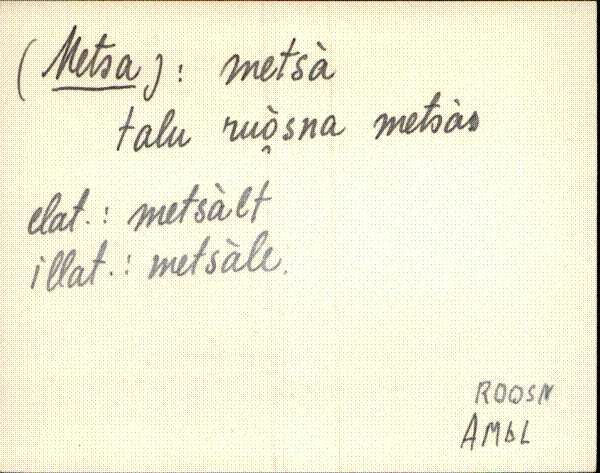 (Metsa): metsà
talu ruò̭sna metsàs
elat.: metsàlt
illat.: metsàle.
ROOSN
AMbL